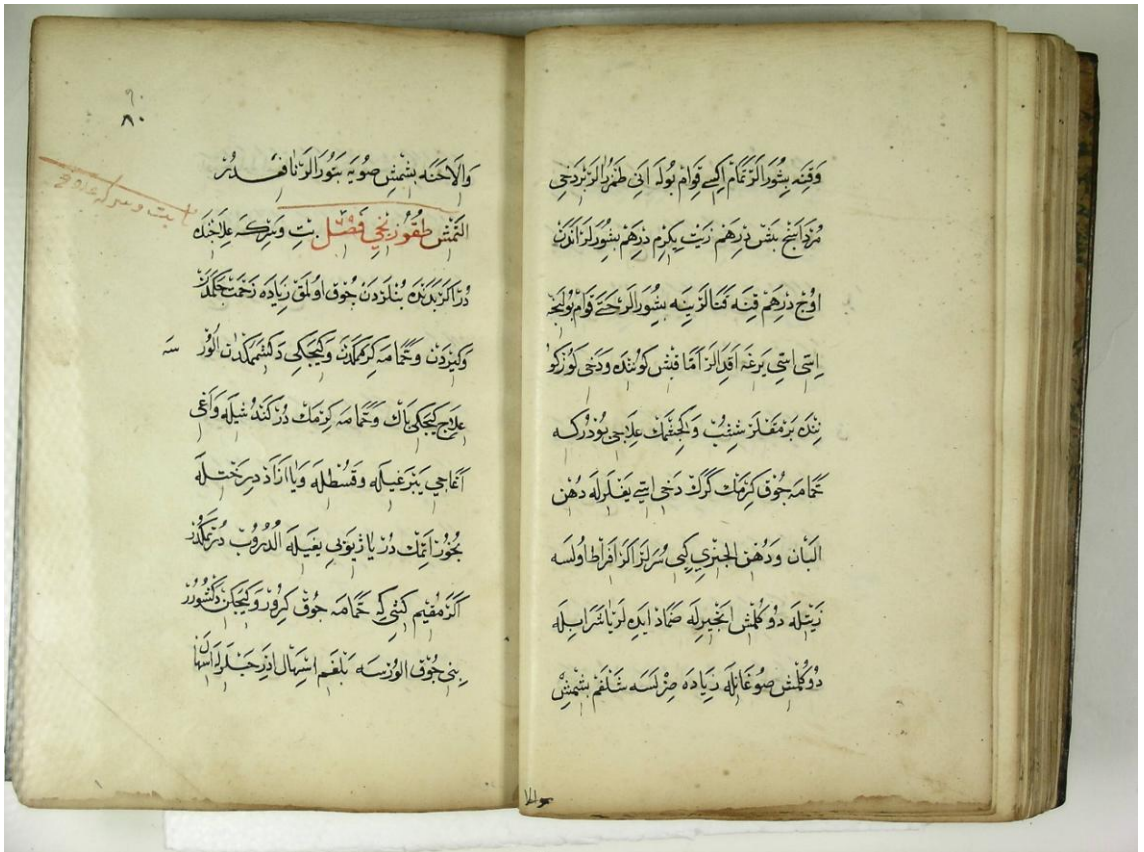 وقنه بشورالر تمام اكسى قوام بوله انى طمزرالر بردخى
مرداسنج بقش درهم زيت يكرم درهم بشورلر اندن
اوج درهم قنه قتالر ينه بشورالر حتى قوام بولنجه
اسى اسى يرغه اقدالر اما قيش كوننده ودخى كوزكو
ننده برمقلر ششب وكجشمك علاجى بودركه
حمامه جوق كرمك كرك دخى اسى يغلرله دهن
البان ودهن الخيرى كبى سرلر اكر افراط اولسه
زيتله دوكلمش انجيرله ضماد ايدهلر يا شرابله
دوكلمش صوغانله زياده صزلسه شلغم بشمش
والا
٩٠
٨٠
والاحنه بشمش صويه بتورالر نافعدر
التمش طقوزنجى فصل ٦٩ بت وسركه علاجنده
بت وسركه علاج
در اكر بدنده بتلردن جوق اولمق زياده زحمت جكمكدن
وكيزدن وحمامه كرممكدن وكيجكى دكشممكدن الور
سه
علاج كيجكى پاك وحمامه كرمك در كندشيله واغى
اغاجى يپرغيله وقسطله ويا ازاد درختله
بخور اتمك در يا زيوبى يغيله الدروب درتمكدر
اكر مقيم كشى كه حمامه جوق كرور وكيجكن دكشورر
بنى جوق الورسه بلغم اسهال ادر حبلرله اسهال